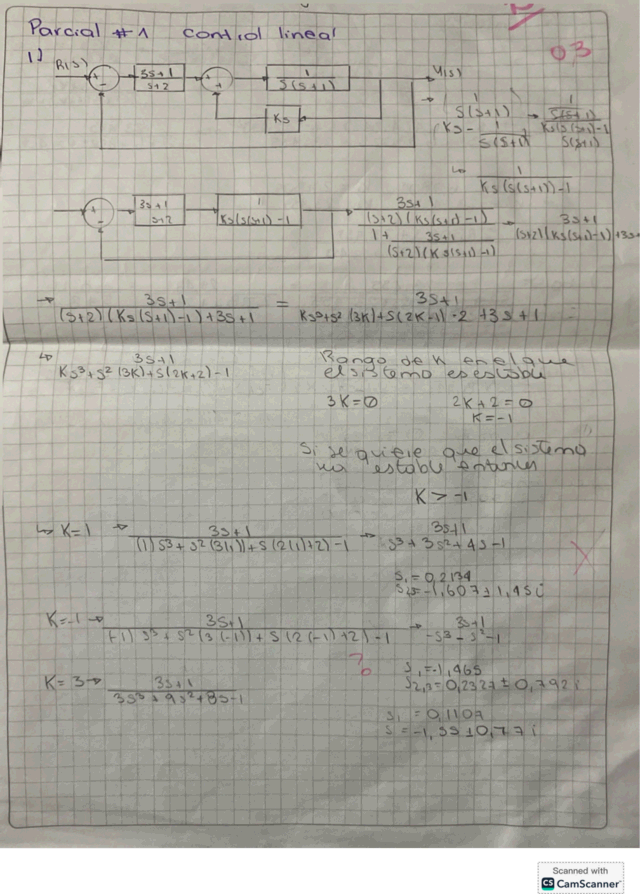 Parcial #1 control lineal
03
1)
R(s) + - 3s+1/s+2 + + 1/S(s+1) Y(s)
Ks
→ 1/S(s+1) / Ks - 1/S(s+1) → 1/S(s+1) / Ks(s(s+1))-1/S(s+1)
↳ 1/Ks(s(s+1))-1
+ - 3s+1/s+2 1/Ks(s(s+1)-1 3s+1/(s+2)(Ks(s+1)-1) / 1+ 3s+1/(s+2)(Ks(s+1)-1) → 3s+1/(s+2)(Ks(s+1)-1)+3s+
→ 3s+1/(s+2)(Ks(s+1)-1)+3s+1 = 3s+1/Ks³+s²(3K)+s(2K-1)-2+3s+1
↳ 3s+1/Ks³+s²(3K)+s(2K+2)-1
Rango de K en el que
el sistema es estable
3K=0 2K+2=0
K=-1
Si se quiere que el sistema
sea estable entonces
K > -1
↳ K=1 → 3s+1/(1)s³+s²(3(1))+s(2(1)+2)-1 → 3s+1/s³+3s²+4s-1
S₁=0,2134
S₂,₃=-1,607±1,45i
K=-1 → 3s+1/(-1)s³+s²(3(-1))+s(2(-1)+2)-1 → 3s+1/-s³-s²-1
?
S₁=-1,465
S₂,₃=0,2327±0,792i
K=3 → 3s+1/3s³+9s²+8s-1
S₁=0,1107
S=-1,55±0,77i
Scanned with
CS CamScanner